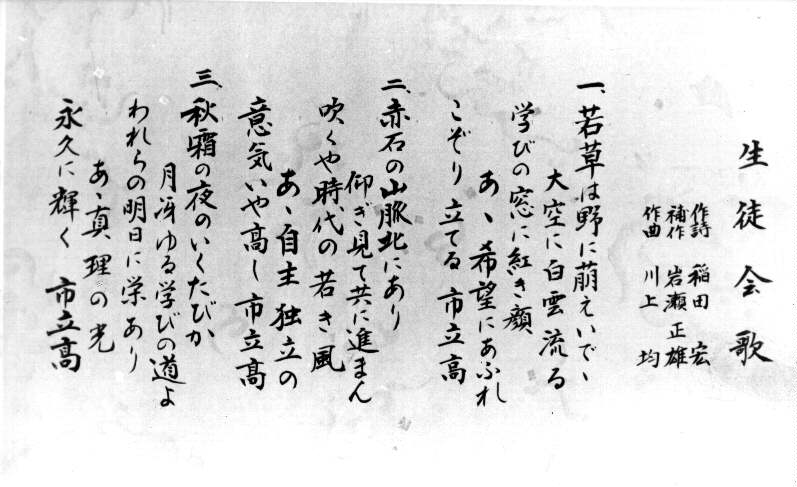 生徒会歌
作詩 稲田 宏
補作 岩瀬正雄
作曲 川上 均
一、若草は野に萠えいでゝ
大空に白雲流る
学びの窓に紅き顔
あゝ希望にあふれ
こぞり立てる 市立高
二、赤石の山脈北にあり
仰ぎ見て共に進まん
吹くや時代の若き風
あゝ自主独立の
意気いや高し市立高
三、秋霜の夜のいくたびか
月冴ゆる学びの道よ
われらの明日に栄あり
あゝ真理の光
永久に輝く 市立高